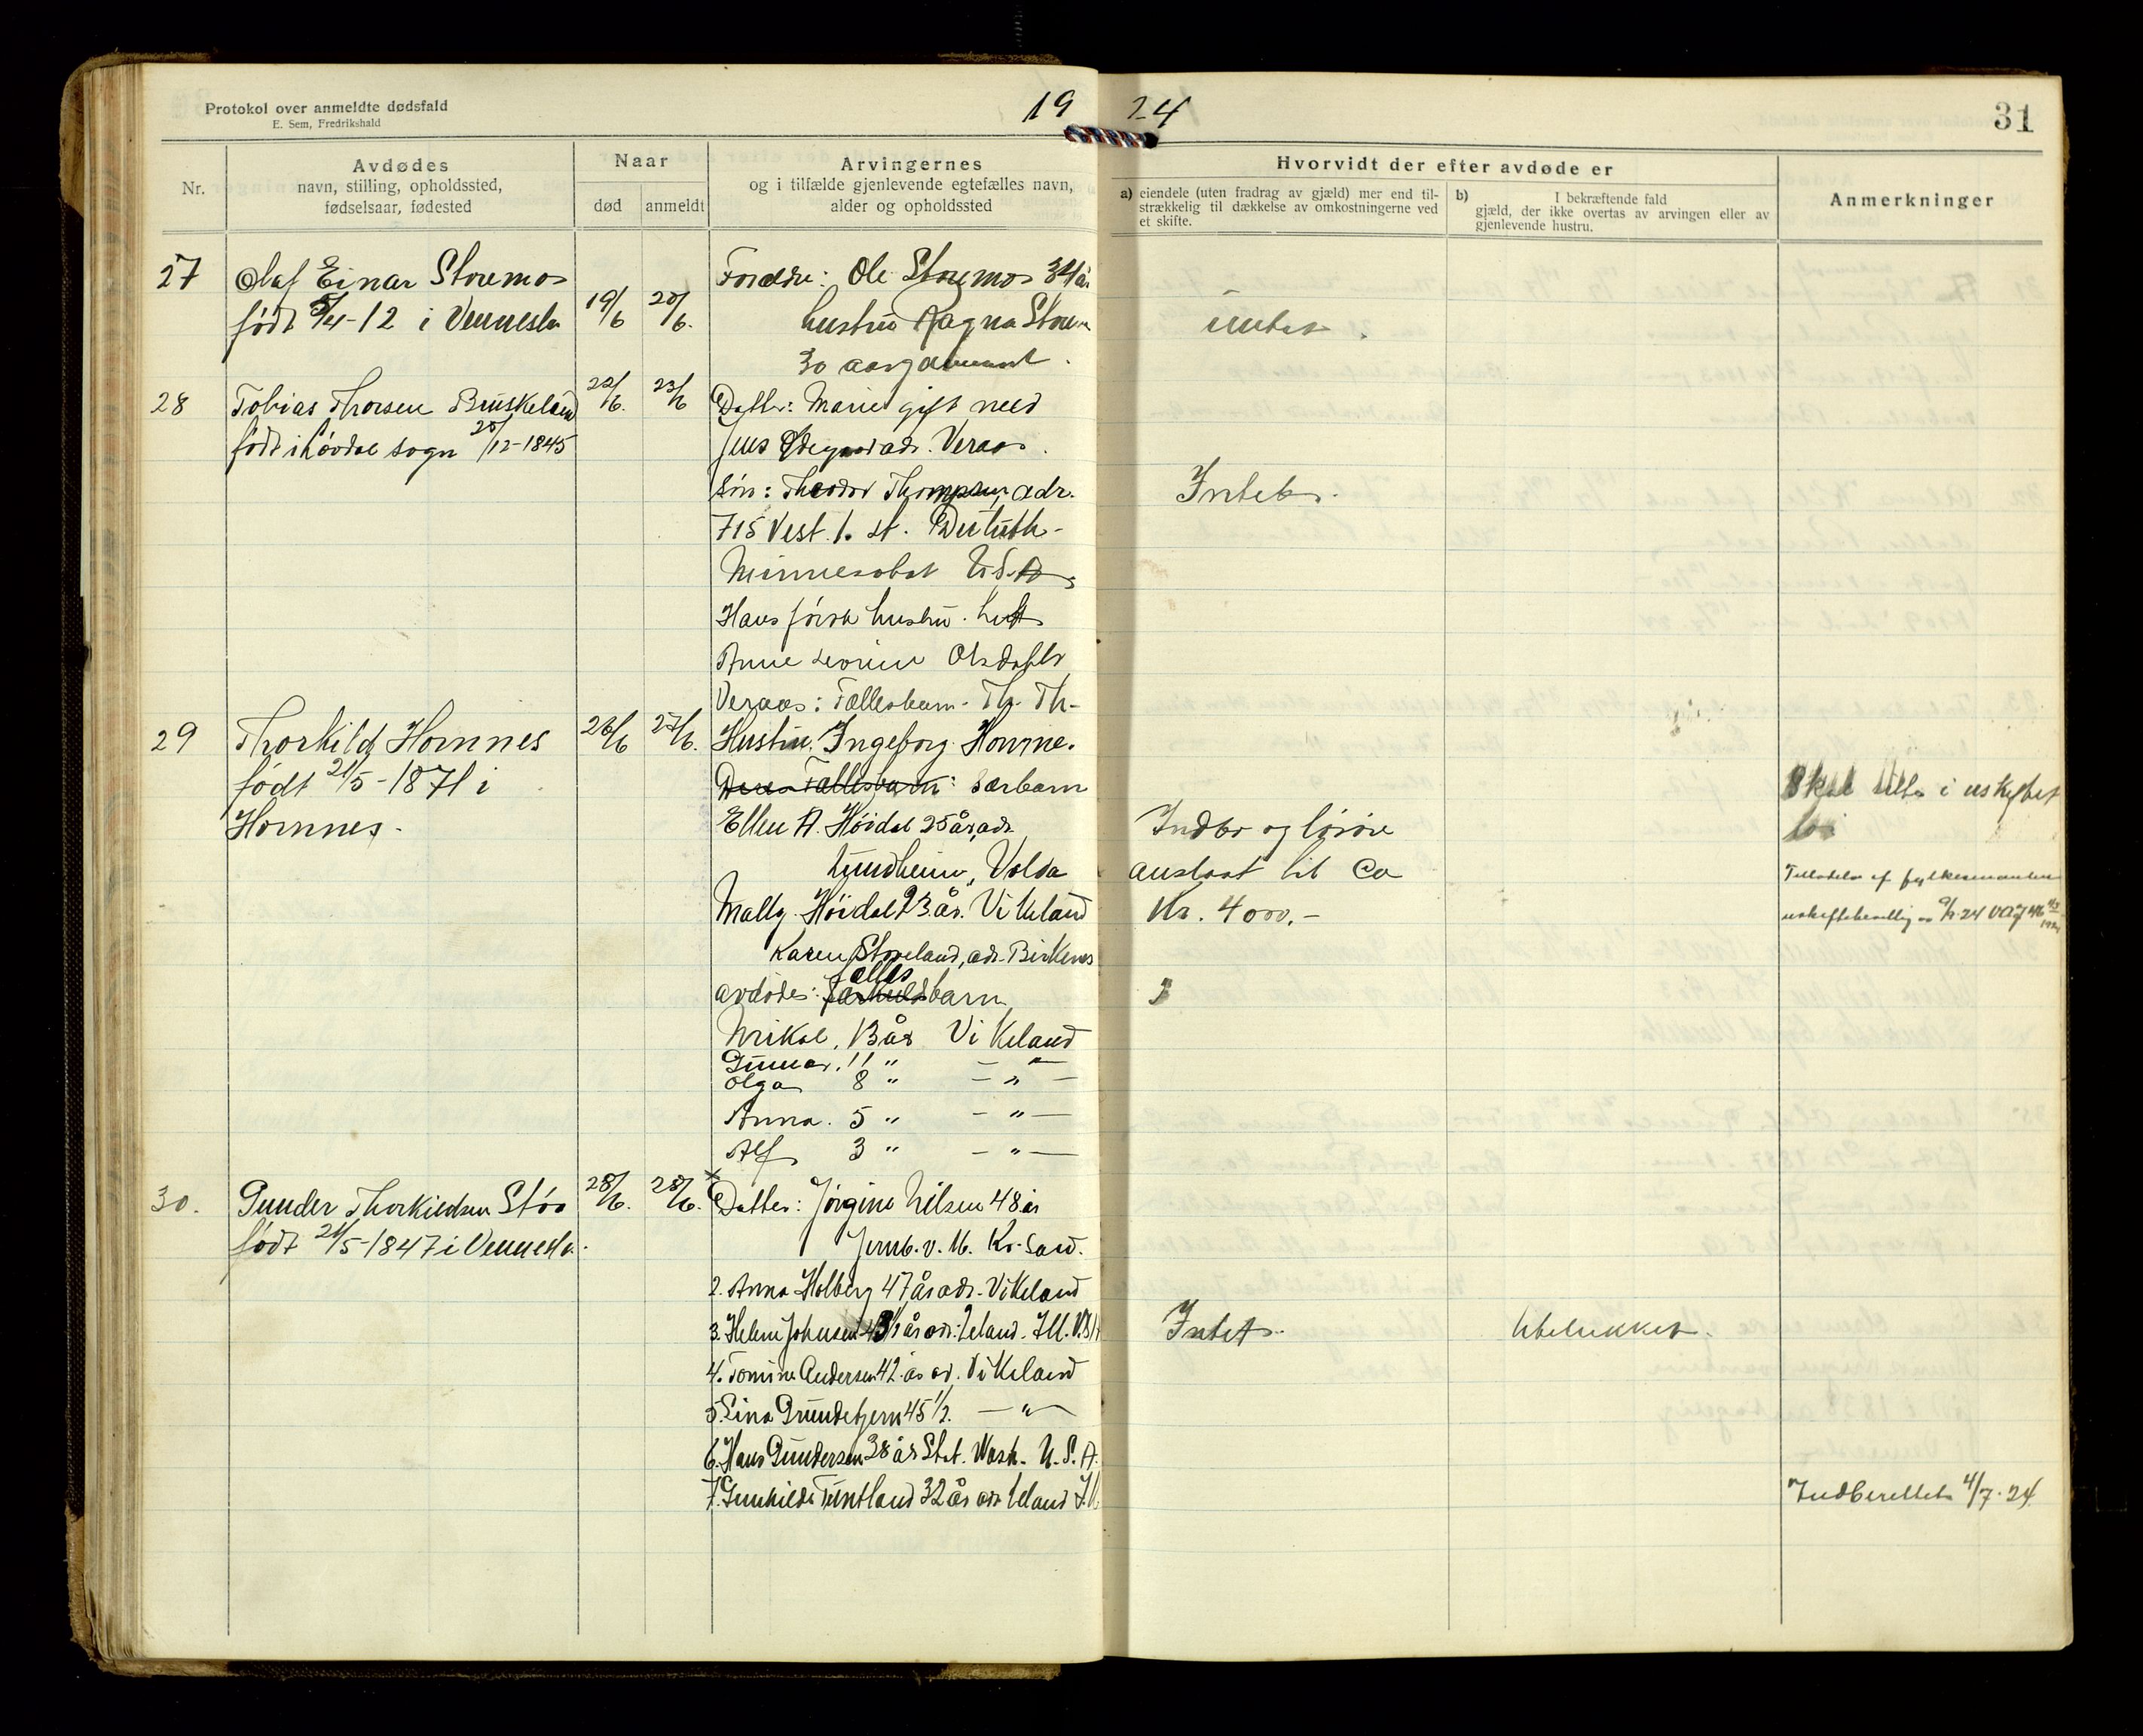 Protokol over anmeldte dødsfald
E. Sem, Fredrikshald
19 24
31
Nr.
Avdødes
navn, stilling, opholdssted,
fødselsaar, fødested
Naar
død
anmeldt
Arvingernes
og i tilfælde gjenlevende egtefælles navn,
alder og opholdssted
Hvorvidt der efter avdøde er
a) eiendele (uten fradrag av gjæld) mer end til-
strækkelig til dækkelse av omkostningerne ved
et skifte.
b) I bekræftende fald
gjæld, der ikke overtas av arvingen eller av
gjenlevende hustru.
Anmerkninger
27
Olaf Einar Storemo
født 5/4-12 i Vennesla
19/6
20/6.
Forældre: Ole Storemo 34 år
hustru Magna Storem
30 aar gammel.
intet.
28
Tobias Thorsen Bruskeland
født i Lövdal sogn 25/12-1845
22/6.
23/6
Datter: Marie gift med
Jens Ødegaard adr. Veraas.
Sön: Theodor Thompsen, adr.
715 Vest. 1. st. Duluth-
Minnesobat U.S.A.
Hans förste hustru. het
Anne Leonine Olsdatter
Veraas: Fællesbarn. Th. Th-
Intet.
29
Thorkild Homnes
født 21/5-1871 i
Homnes.
26/6
27/6.
Hustru. Ingeborg Homme.
Deres Fællesbarn: særbarn
Ellen A. Höidal 25 år, adr.
Lundheim, Volda
Mally Höidal 23 år. Vikeland
Karen Stoveland, adr. Birkenes
avdödes: fælles barn
Mikal, 13 år Vikeland
Gunnar, 11 " - " -
Olga 8 " - " -
Anna. 5 " - " -
Alf 3 " - " -
Indbo og lösöre
anslaat til Ca
Kr. 4000,-
Skal sitte i uskiftet
bo
Tilladelse af fylkesmanden
30.
Gunder Thorkildsen Stöa
født 21/5-1847 i Vennesla.
28/6.
28/6.
Datter: Jörgine Nilsen 48 år
Jernb. v. 16. Kr. Sand.
2. Anna Holberg 47 år adr. Vikeland
3. Helene Johnsen år adr: Leland. Ill.
4. Tomine Andersen 42 år ad. Vikeland
5. Lina Grundetjern 45 1/2. - " -
6. Hans Gundersen 38 år Stat. Wash. U.S.A.
7. Gunhilde Tuntland 32 år adr Leland Ill
Intet.
Ubetrukket.
Indberettet 4/7.24